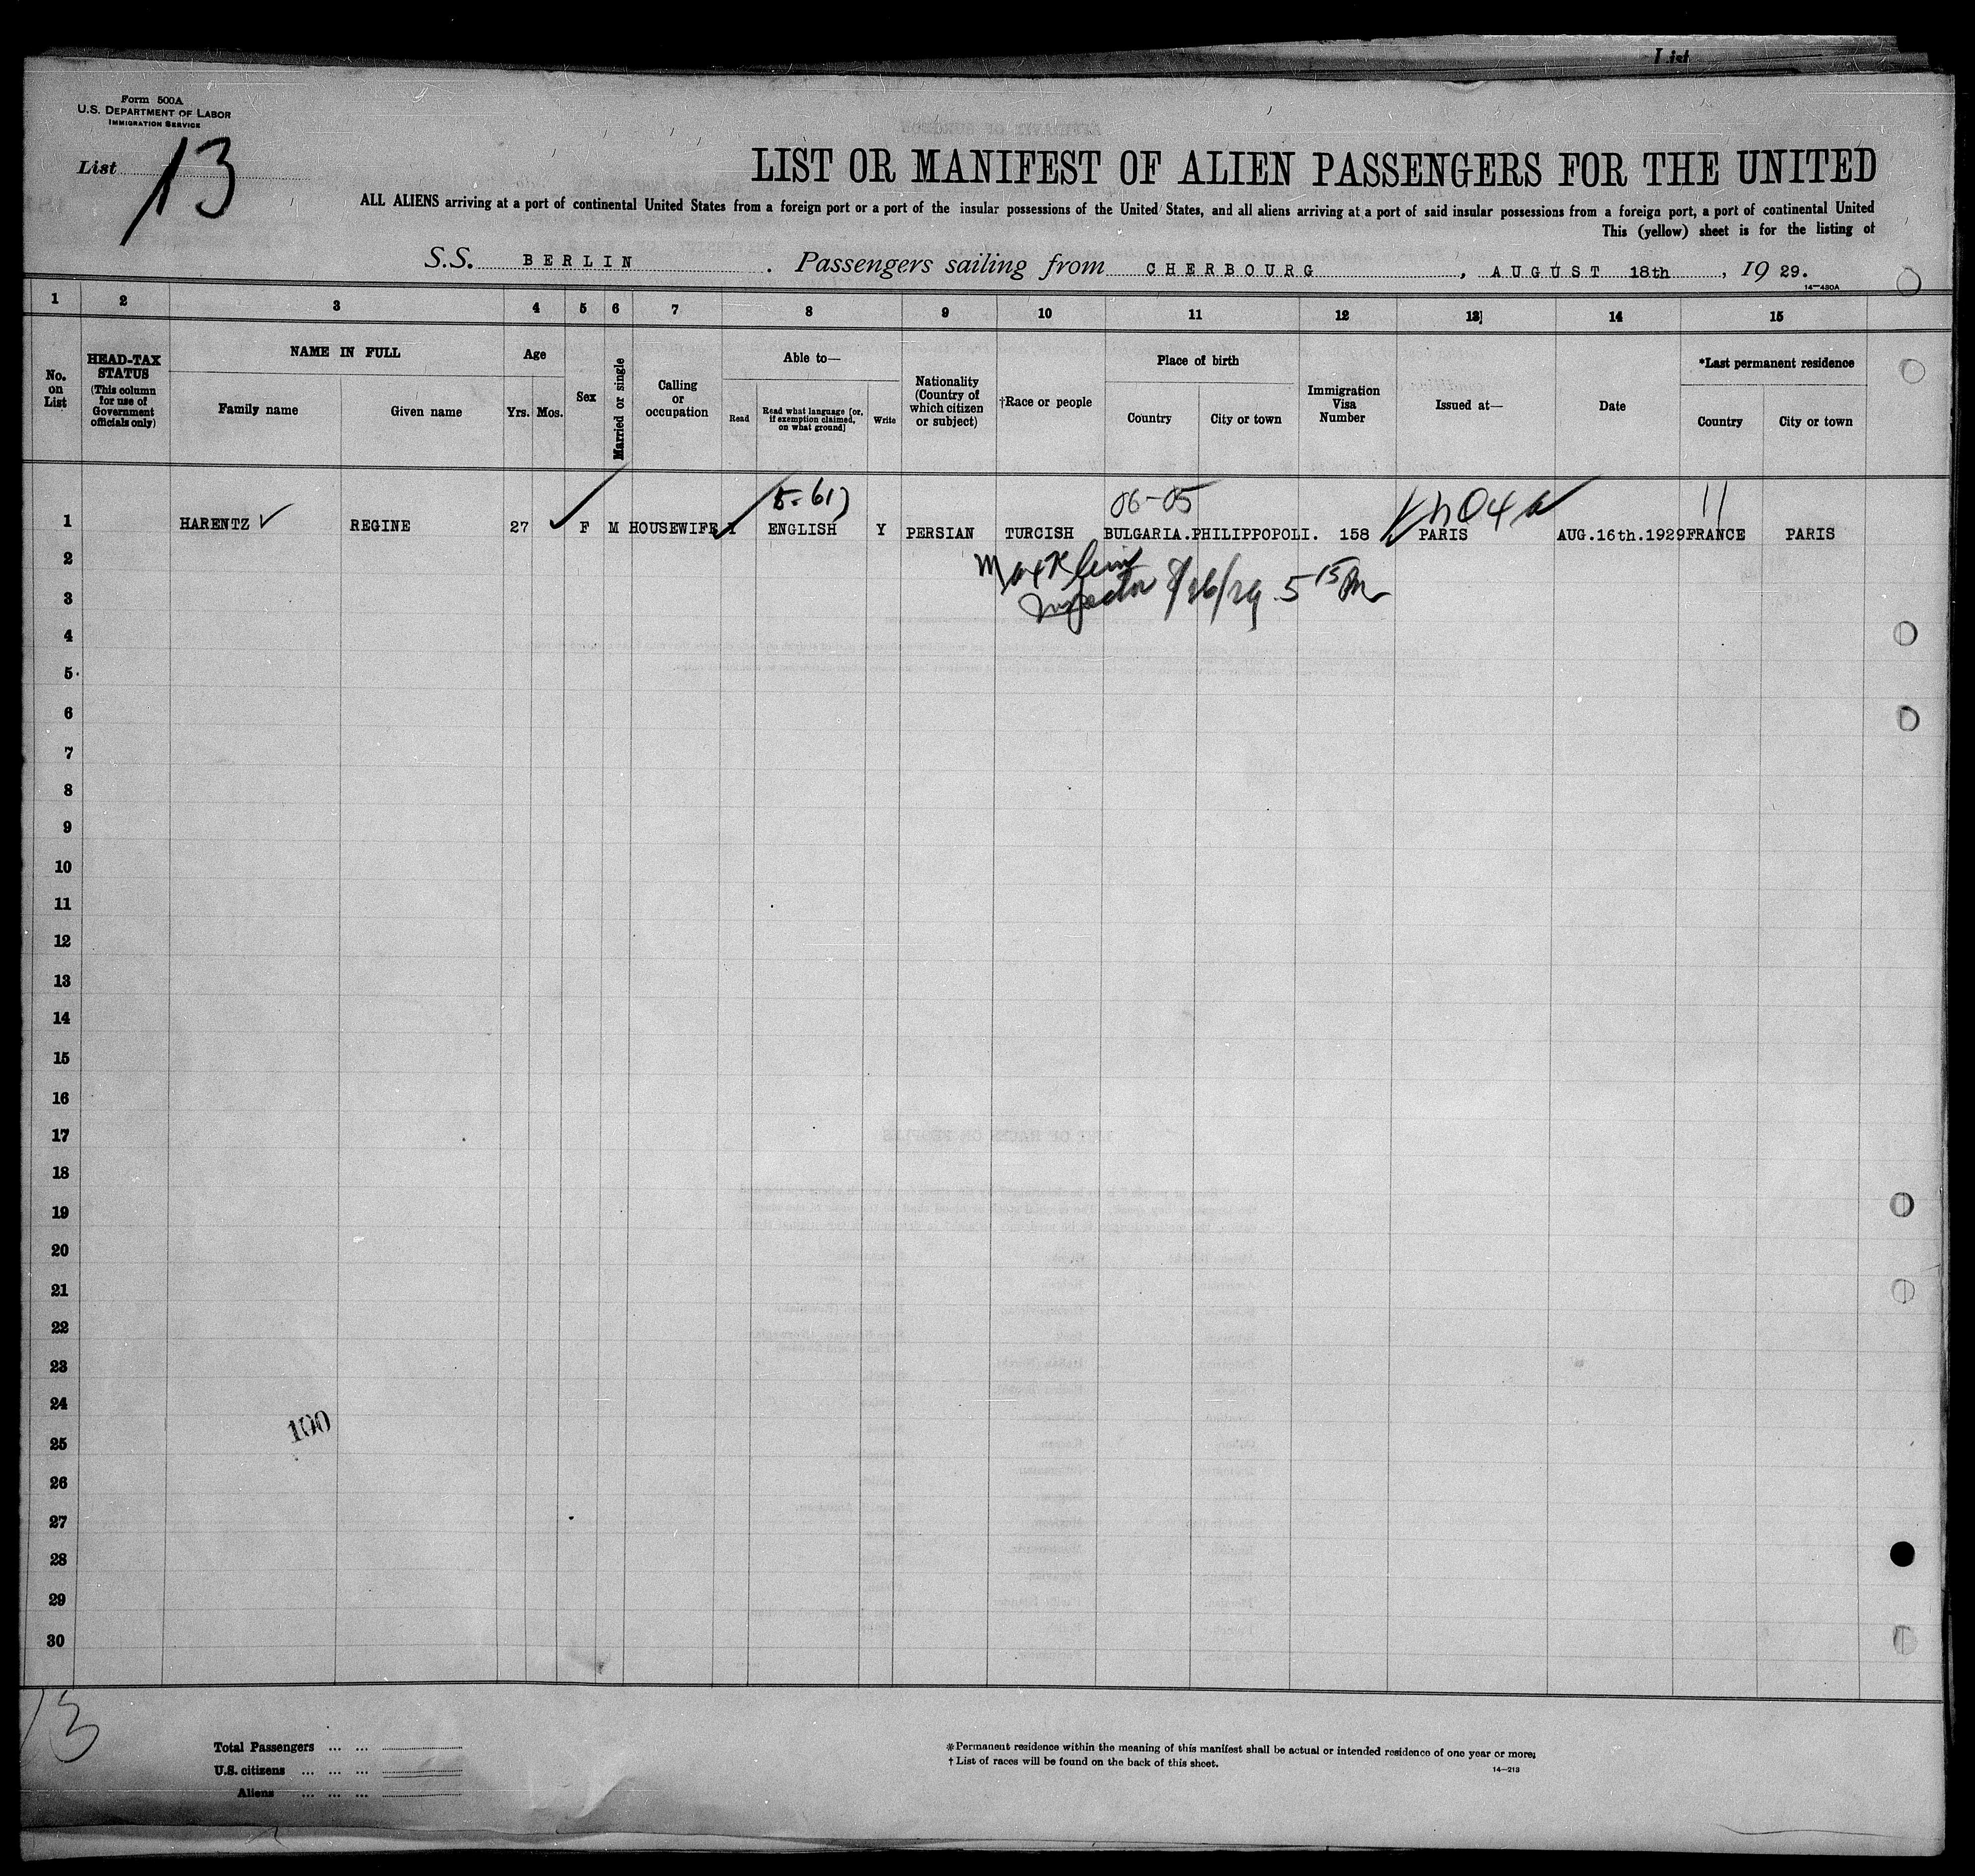 List
Form 500A
U.S. DEPARTMENT OF LABOR
IMMIGRATION SERVICE
List 13
LIST OR MANIFEST OF ALIEN PASSENGERS FOR THE UNITED
ALL ALIENS arriving at a port of continental United States from a foreign port or a port of the insular possessions of the United States, and all aliens arriving at a port of said insular possessions from a foreign port, a port of continental United
This (yellow) sheet is for the listing of
S.S. BERLIN. Passengers sailing from CHERBOURG, AUGUST 18th, 19 29.
14—430A
1 2 3 4 5 6 7 8 9 10 11 12 13 14 15
No. on List
HEAD-TAX STATUS (This column for use of Government officials only)
NAME IN FULL
Family name
Given name
Age
Yrs. Mos.
Sex
Married or single
Calling or occupation
Able to—
Read
Read what language [or, if exemption claimed, on what ground]
Write
Nationality (Country of which citizen or subject)
†Race or people
Place of birth
Country
City or town
Immigration Visa Number
Issued at—
Date
*Last permanent residence
Country
City or town
06-05
11
1 HARENTZ REGINE 27 F M HOUSEWIFE Y ENGLISH Y PERSIAN TURCISH BULGARIA. PHILIPPOPOLI. 158 PARIS AUG.16th.1929 FRANCE PARIS
2
3 Inspector 8/26/29 5 15 PM
4
5
6
7
8
9
10
11
12
13
14
15
16
17
18
19
20
21
22
23
24
100
25
26
27
28
29
30
13
Total Passengers ... ...
U.S. citizens ... ... ...
Aliens ... ... ...
*Permanent residence within the meaning of this manifest shall be actual or intended residence of one year or more.
†List of races will be found on the back of this sheet.
14—213